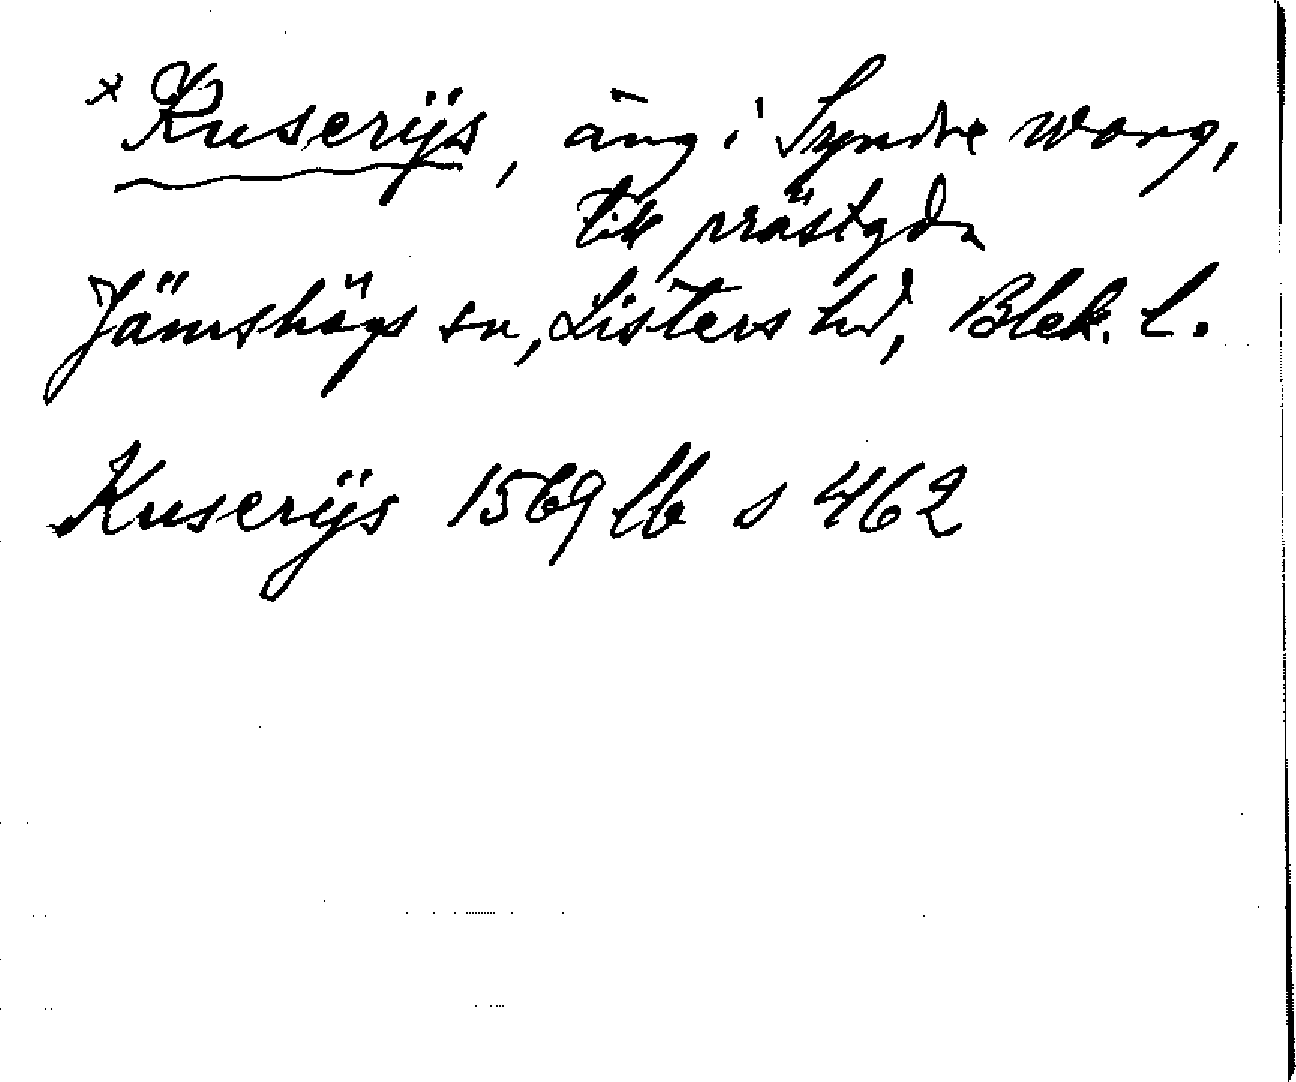 × Kuserijs, äng i Syndre wong,
till prästgdn
Jämshögs sn, Listers hd, Blek. l.
Kuserijs 1569 lb s 462